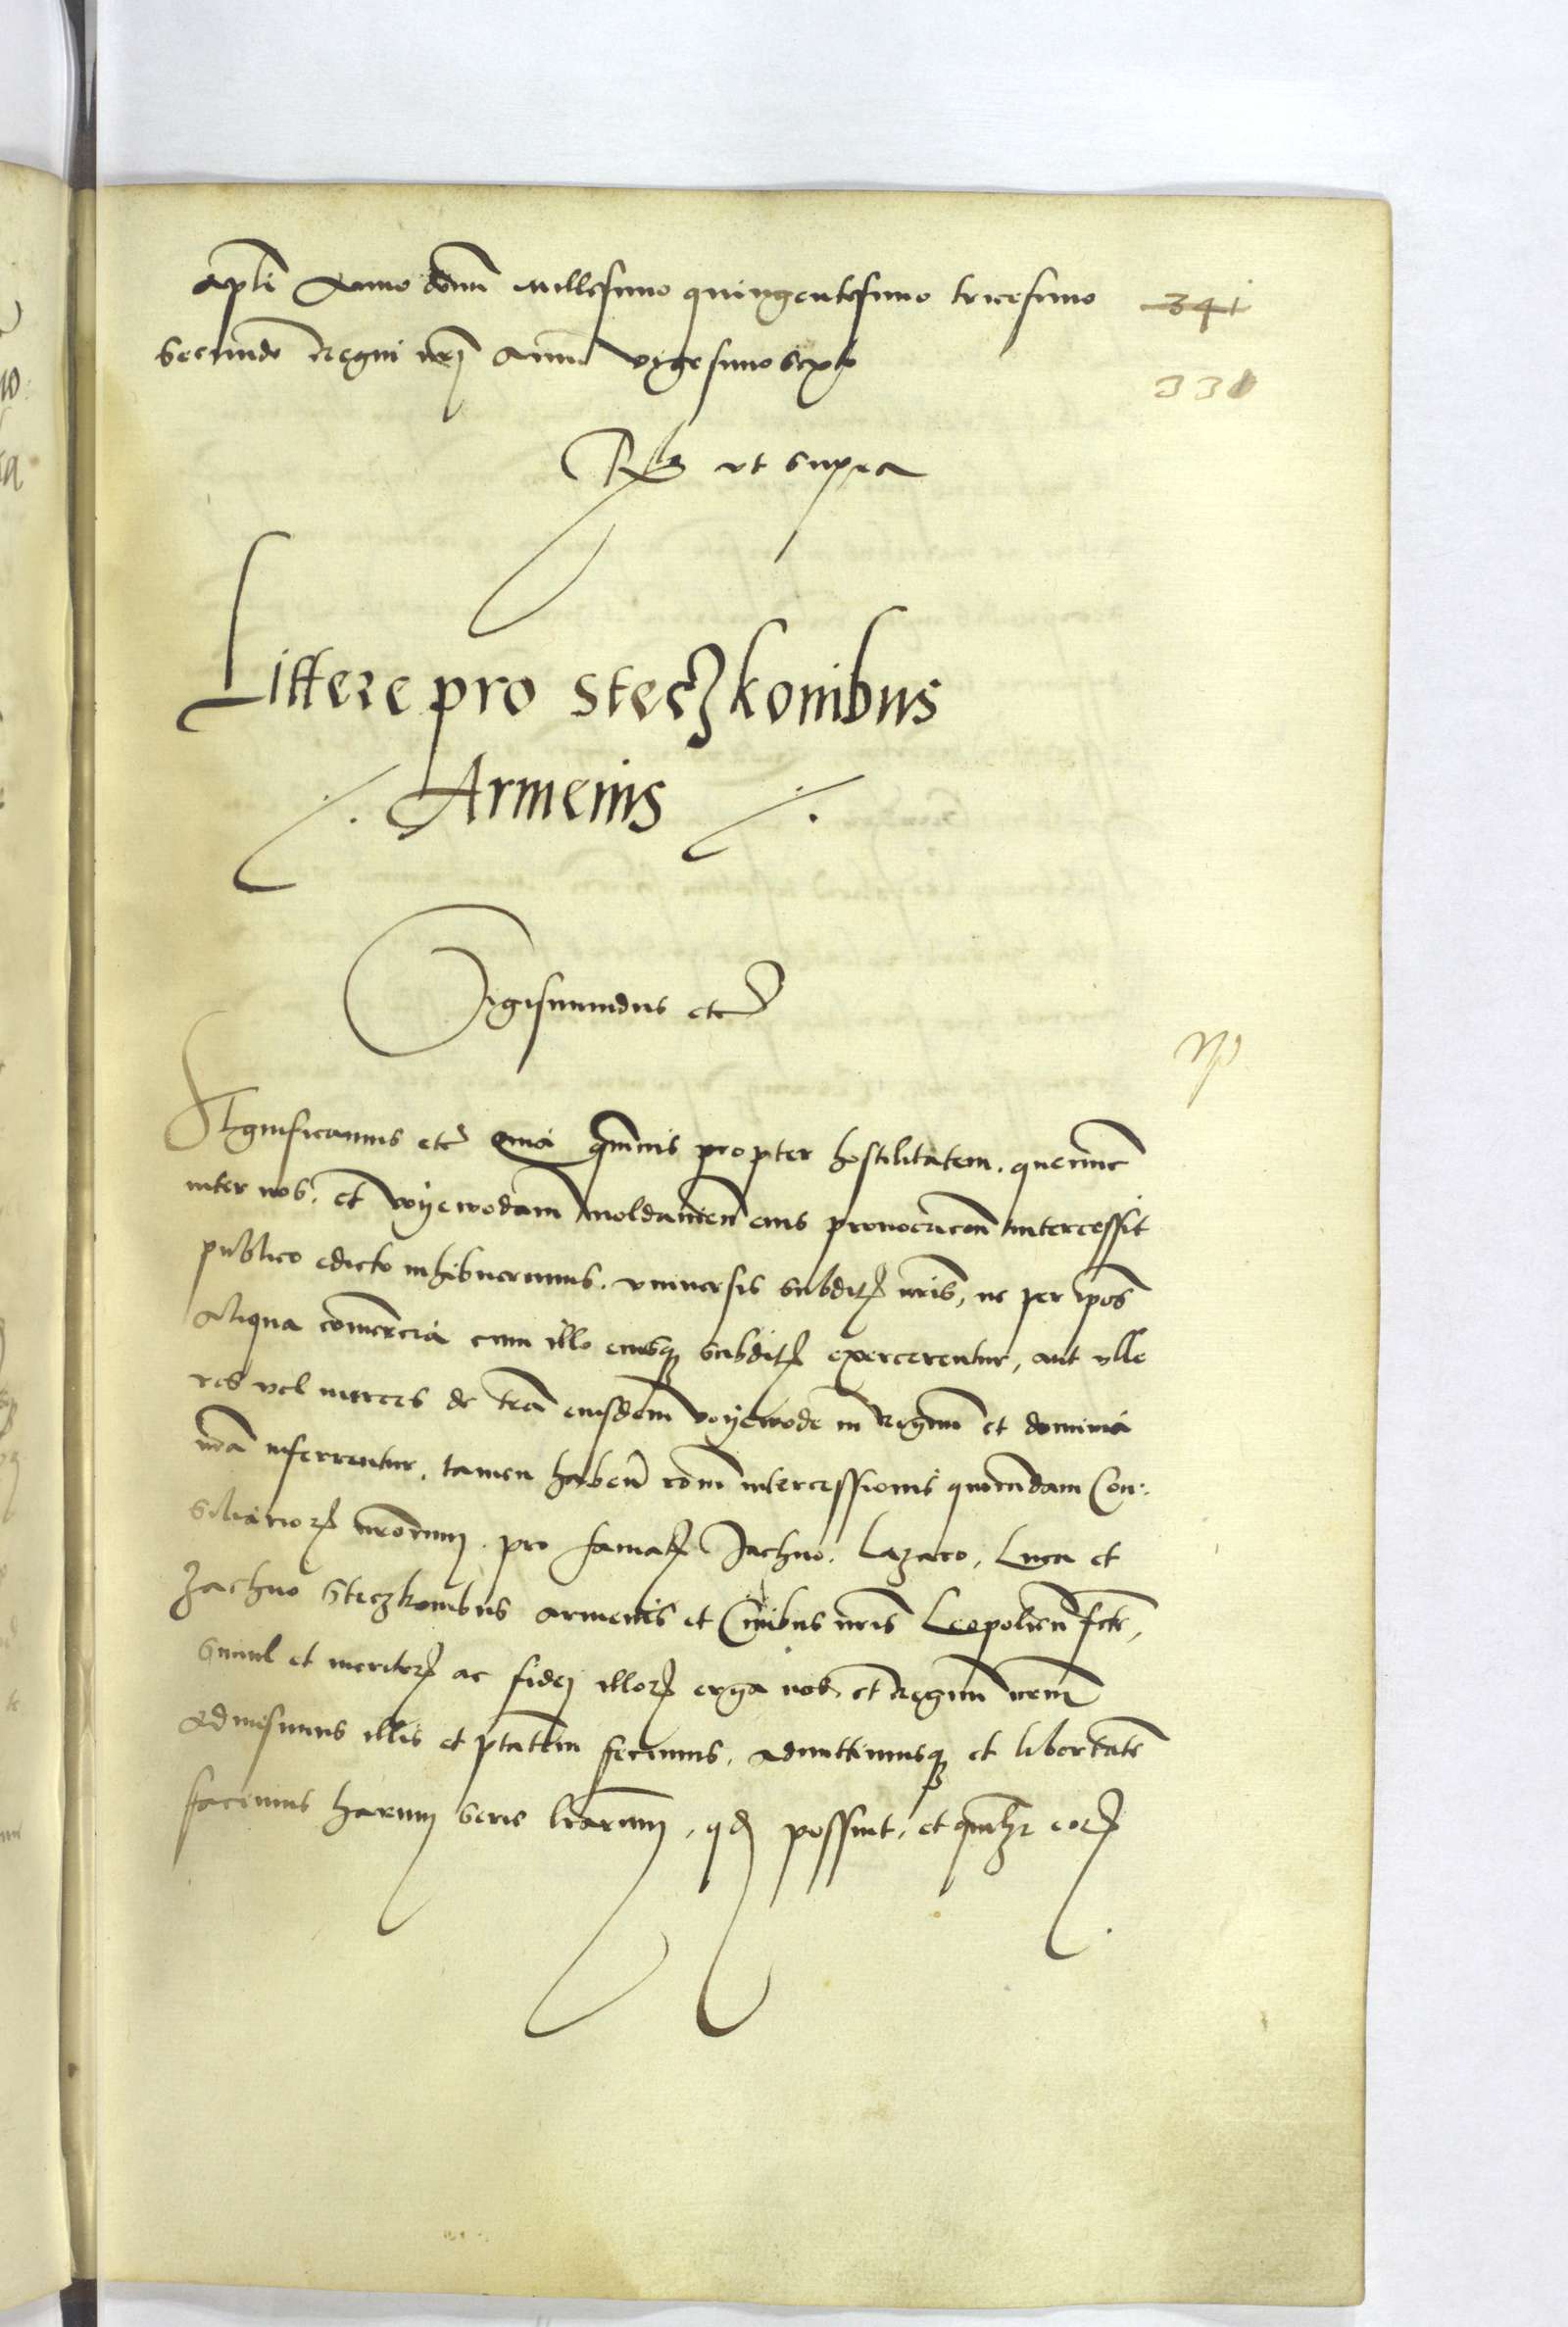 apli Anno domi millesimo quingentesimo tricesimo
341
secundo Regni nrj Anno vigesimosexto
331
Rs ut supra
Littere pro Steczkonibus
Armenis
Sigismundus etc
Significamus etc Quia qmvis propter hostilitatem. que nunc
inter nos. et woyewodam Moldavien eius provocacion intercessit
publico edicto inhibueramus. universis subditis nris, ne per ipos
aliqua comercia cum illo eiusq subditis exercerentur, aut ulle
res vel merces de tra eiusdem woyewode in Regnum et dominia
nra inferrentur. tamen haben rom intercessionis quorundam Con:
siliarior nrorum. pro famatis Jachno. Lazaro, Luca et
Zachno Steczkonibus armenis et Civibus nris Leopolien fcte,
simul et meritor ac fidej illor erga nos. et Regnum nrm
admisimus illis et ptatem fecimus. admittimusq et libertate
facimus harum serie lrarum, qd possint, et quilr eor